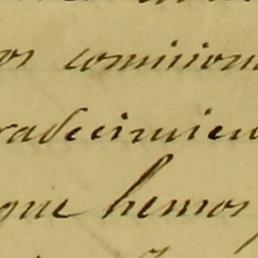 os comision
radecimien
que hemos